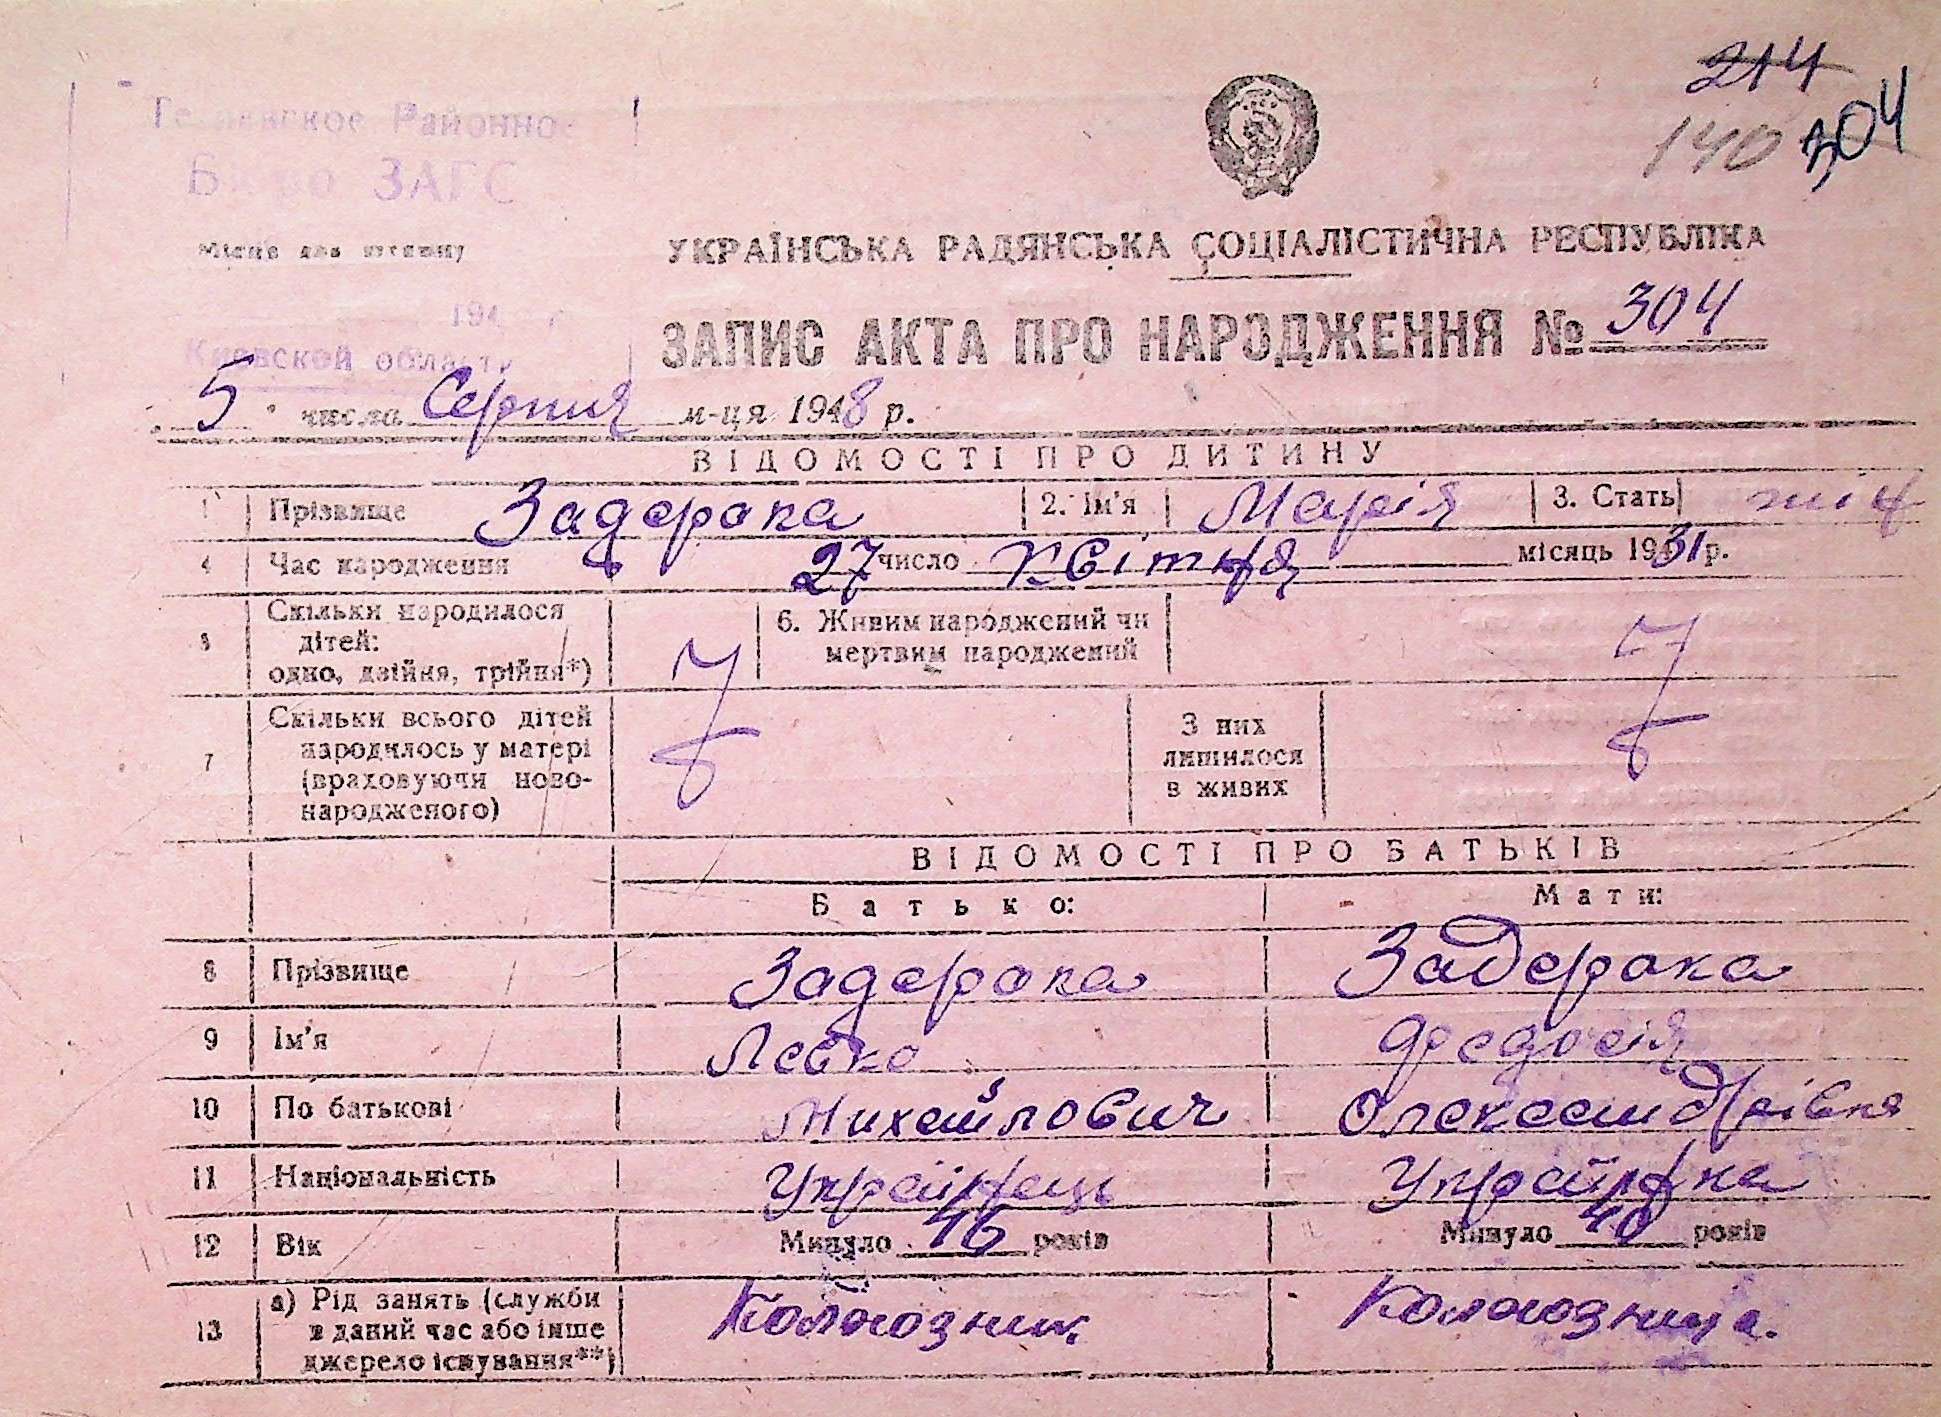 214
140 304
Районное
Бюро ЗАГС
Місце для штампу
УКРАЇНСЬКА РАДЯНСЬКА СОЦІАЛІСТИЧНА РЕСПУБЛІКА
194 г
Киевской области
ЗАПИС АКТА ПРО НАРОДЖЕННЯ № 304
5 числа Серпня м-ця 1948 р.
ВІДОМОСТІ ПРО ДИТИНУ
1 Прізвище Задерака 2. Ім'я Марія 3. Стать жіч
4 Час народження 27 число Квітня місяць 1931 р.
5 Скільки народилося дітей: одно, двійня, трійня*) 6. Живим народжений чи мертвим народжений
7 Скільки всього дітей народилось у матері (враховуючи новонародженого) З них лишилося в живих
ВІДОМОСТІ ПРО БАТЬКІВ
Батько: Мати:
8 Прізвище Задерака Задерака
9 Ім'я Левко Федосія
10 По батькові Михайлович Олександрівна
11 Національність Українець Українка
12 Вік Минуло 46 років Минуло 40 років
13 а) Рід занять (служби в даний час або інше джерело існування**) Колгозник Колгозниця.